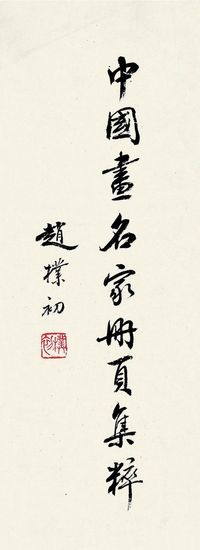 中國畫名家册頁集粹
趙樸初